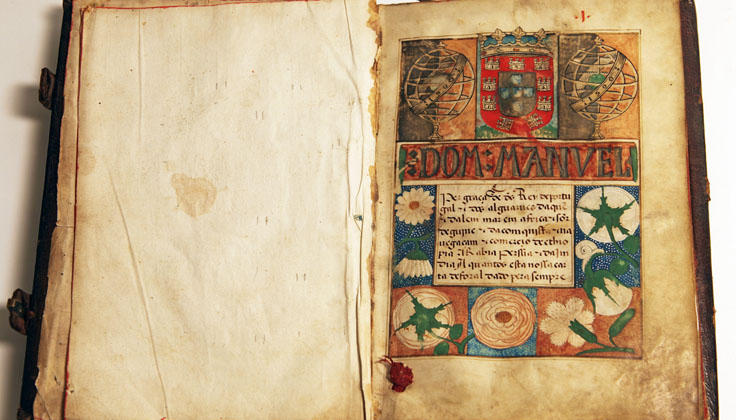 .I.
DOM: MANVEL
Per graça de ds Rey deportu
gal ⁊ dos alguarues daquē
⁊ dalem mar em africa sōr
de guine ⁊ da comquista na
uegacam ⁊ comercio de ethio
pia Arabia Persia ⁊ da Jn
dia A quantos esta nossa car
ta de foral dado pera sempre